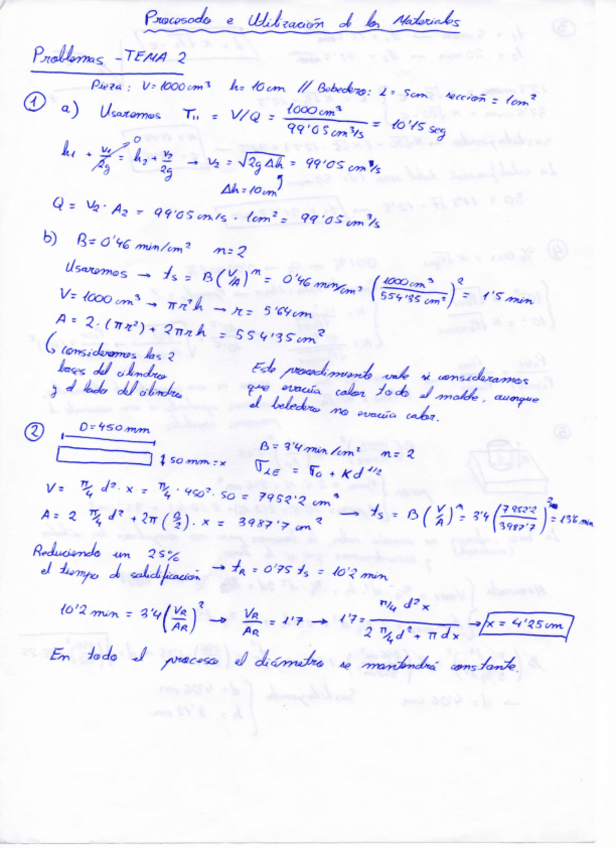 Procesado e Utilización de los Materiales
Problemas - TEMA 2
Pieza: V=1000cm³ h=10cm // Bebedero: L=5cm sección=1cm²
① a) Usaremos T₁₁ = V/Q = 1000cm³ / 99'05cm³/s = 10'15 seg
h₁ + v₁/2g (0) = h₂ + v₂/2g → v₂ = √2gΔh = 99'05 cm³/s
Δh=10cm
Q = v₂·A₂ = 99'05 cm/s · 1cm² = 99'05 cm³/s
b) B=0'46 min/cm² n=2
Usaremos → ts = B(V/A)ⁿ = 0'46 min/cm² (1000cm³ / 554'35cm²)² = 1'5 min
V=1000cm³ → πr²h → r = 5'64cm
A = 2·(πr²) + 2πrh = 554'35 cm²
↳ consideramos las 2
bases del cilindro
y el lado del cilindro
Este procedimiento vale si consideramos
que evacúa calor todo el molde, aunque
el bebedero no evacúa calor.
② D=450mm
↕50mm=x
B=3'4min/cm² n=2
σLE = σ₀ + Kd^-1/2
V = π/4 d²·x = π/4·450²·50 = 7952'2 cm³
A = 2 π/4 d² + 2π(D/2)·x = 3987'7 cm²
→ ts = B(V/A)ⁿ = 3'4(7952'2/3987'7)² = 13'6 min
Reduciendo un 25%
el tiempo de solidificación → tR = 0'75 ts = 10'2 min
10'2 min = 3'4(VR/AR)² → VR/AR = 1'7 → 1'7 = π/4 d²x / 2 π/4 d² + πdx → x = 4'25cm
En todo el proceso el diámetro se mantendrá constante.